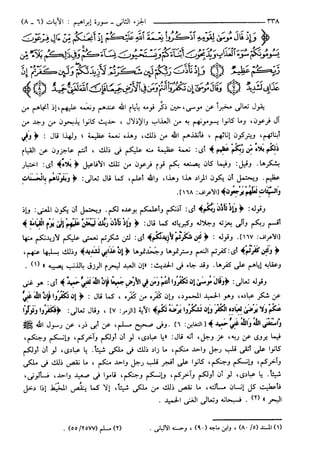 ٣٣٨ ــــــــ الجزء الثانى - سورة إبراهيم : الآيات (٦ - ٨)
﴿ وَإِذْ قَالَ مُوسَىٰ لِقَوْمِهِ اذْكُرُوا نِعْمَةَ اللَّهِ عَلَيْكُمْ إِذْ أَنجَاكُم مِّنْ
آلِ فِرْعَوْنَ يَسُومُونَكُمْ سُوءَ الْعَذَابِ وَيُذَبِّحُونَ أَبْنَاءَكُمْ وَيَسْتَحْيُونَ نِسَاءَكُمْ وَفِي ذَٰلِكُم بَلَاءٌ مِّن
رَّبِّكُمْ عَظِيمٌ (٦) وَإِذْ تَأَذَّنَ رَبُّكُمْ لَئِن شَكَرْتُمْ لَأَزِيدَنَّكُمْ وَلَئِن كَفَرْتُمْ إِنَّ
عَذَابِي لَشَدِيدٌ (٧) وَقَالَ مُوسَىٰ إِن تَكْفُرُوا أَنتُمْ وَمَن فِي الْأَرْضِ جَمِيعًا فَإِنَّ اللَّهَ لَغَنِيٌّ حَمِيدٌ (٨) ﴾
يقول تعالى مخبراً عن موسى، حين ذكّر قومه بأيام الله عندهم ونعمه عليهم، إذ أنجاهم من
آل فرعون، وما كانوا يسومونهم به من العذاب والإذلال ، حيث كانوا يذبحون من وجد من
أبنائهم، ويتركون إناثهم ، فأنقذهم الله من ذلك، وهذه نعمة عظيمة ؛ ولهذا قال : ﴿ وفي
ذلكم بلاء من ربكم عظيم ﴾ أى: نعمة عظيمة منه عليكم فى ذلك ، أنتم عاجزون عن القيام
بشكرها. وقيل: وفيما كان يصنعه بكم قوم فرعون من تلك الأفاعيل ﴿ بلاء ﴾ أى: اختبار
عظيم. ويحتمل أن يكون المراد هذا وهذا، والله أعلم، كما قال تعالى: ﴿ وبلوناهم بالحسنات
والسيئات لعلهم يرجعون ﴾ [الأعراف: ١٦٨].
وقوله: ﴿ وإذ تأذن ربكم ﴾ أى: آذنكم وأعلمكم بوعده لكم. ويحتمل أن يكون المعنى: وإذ
أقسم ربكم وآلى بعزته وجلاله وكبريائه كما قال: ﴿ وإذ تأذن ربك ليبعثن عليهم إلى يوم القيامة ﴾
[الأعراف: ١٦٧]. وقوله : ﴿ لئن شكرتم لأزيدنكم ﴾ أى: لئن شكرتم نعمتى عليكم لأزيدنكم منها
﴿ ولئن كفرتم ﴾ أى: كفرتم النعم وسترتموها وجحدتموها ﴿ إن عذابي لشديد ﴾ وذلك بسلبها عنهم،
وعقابه إياهم على كفرها. وقد جاء فى الحديث: «إن العبد ليحرم الرزق بالذنب يصيبه » (١) .
وقوله تعالى: ﴿ وقال موسى إن تكفروا أنتم ومن في الأرض جميعا فإن الله لغني حميد ﴾ أى: هو غنى
عن شكر عباده، وهو الحميد المحمود، وإن كفره من كفره ، كما قال : ﴿ إن تكفروا فإن الله غني
عنكم ولا يرضى لعباده الكفر وإن تشكروا يرضه لكم ﴾ الآية [الزمر: ٧] ، وقال تعالى: ﴿ فكفروا وتولوا
واستغنى الله والله غني حميد ﴾ [التغابن: ٦]. وفى صحيح مسلم، عن أبى ذر، عن رسول الله ﷺ
فيما يروى عن ربه، عز وجل، أنه قال: «يا عبادى، لو أن أولكم وآخركم، وإنسكم وجنكم،
كانوا على أتقى قلب رجل واحد منكم، ما زاد ذلك فى ملكى شيئاً. يا عبادى، لو أن أولكم
وآخركم، وإنسكم وجنكم، كانوا على أفجر قلب رجل واحد منكم ، ما نقص ذلك فى ملكى
شيئاً. يا عبادى، لو أن أولكم وآخركم، وإنسكم وجنكم، قاموا فى صعيد واحد، فسألونى،
فأعطيت كل إنسان مسألته، ما نقص ذلك من ملكى شيئاً، إلا كما ينقص المخيط إذا دخل
البحر » (٢) . فسبحانه وتعالى الغنى الحميد .
(١) المسند (٥/ ٨٠) ، وابن ماجه (٩٠) ، وحسنه الألبانى . (٢) مسلم (٢٥٧٧/ ٥٥) .